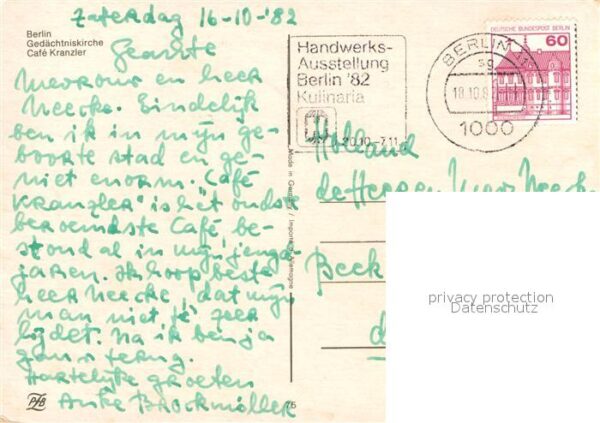 Zaterdag 16-10-'82
Berlin
Gedächtniskirche
Café Kranzler
Geachte
Mevrouw en heer
Neecke. Eindelijk
ben ik in mijn ge-
boorte stad en ge-
niet enorm. Café
Kranzler is het oudste
beroemdste Café, be-
stond al in mijn jeugd
jaren. Ik hoop beste
heer Neecke, dat mijn
man niet te zeer
lijdt. Na ik ben ja
gauw terug.
Hartelijke groeten
Anke Brockmöller
PfB
76
Made in Germany / Imprimé en Allemagne
Handwerks-
Ausstellung
Berlin '82
Kulinaria
20.10.-7.11.
BERLIN 11
sg
18.10.8
1000
DEUTSCHE BUNDESPOST BERLIN
60
Holland
de Herren
Beek
d
privacy protection
Datenschutz